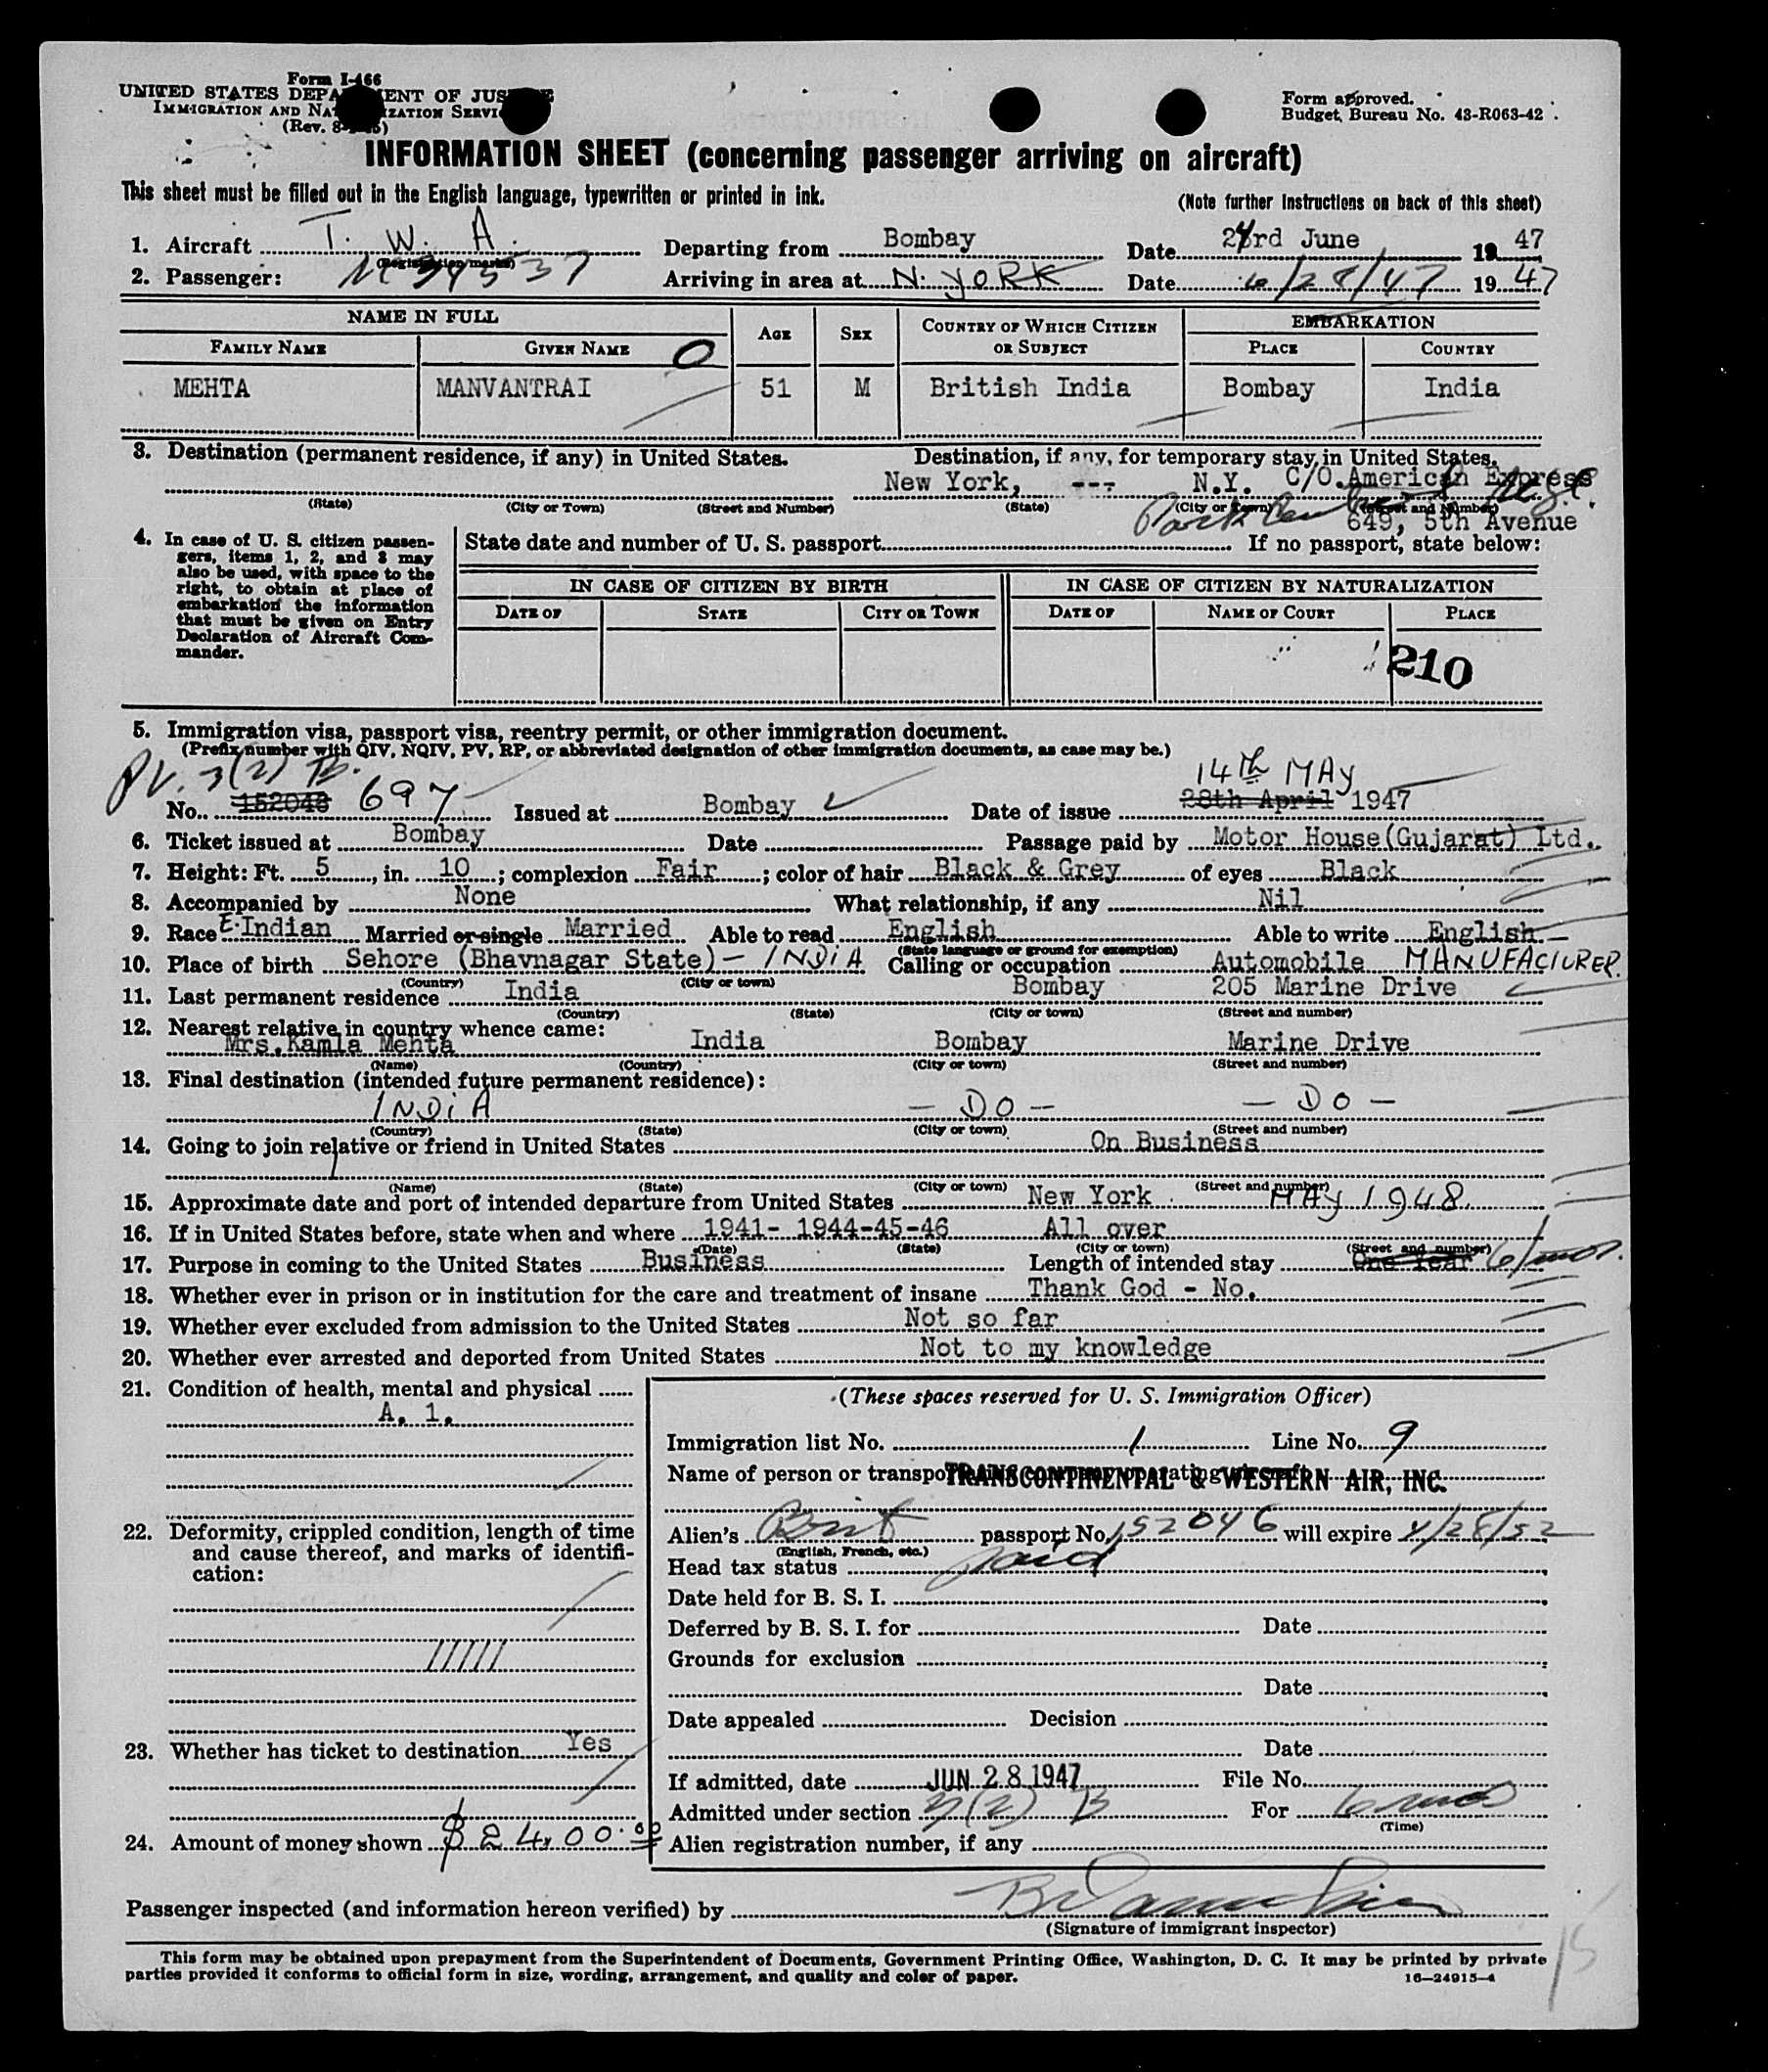 Form I-466
UNITED STATES DEPARTMENT OF JUSTICE
IMMIGRATION AND NATURALIZATION SERVICE
(Rev. 8- )
Form approved.
Budget Bureau No. 43-R063-42.
INFORMATION SHEET (concerning passenger arriving on aircraft)
This sheet must be filled out in the English language, typewritten or printed in ink.
(Note further instructions on back of this sheet)
1. Aircraft T. W. A. Departing from Bombay Date 24rd June 1947
(Registration marks)
2. Passenger: NC 34537 Arriving in area at N. YORK Date 6/28/47 1947
NAME IN FULL AGE SEX COUNTRY OF WHICH CITIZEN OR SUBJECT EMBARKATION
FAMILY NAME GIVEN NAME O PLACE COUNTRY
MEHTA MANVANTRAI 51 M British India Bombay India
3. Destination (permanent residence, if any) in United States. Destination, if any, for temporary stay in United States.
New York, --- N.Y. C/O.American Express
(State) (City or Town) (Street and Number) (State) (City or Town) (Street and Number)
Park 649, 5th Avenue
4. In case of U. S. citizen passengers, items 1, 2, and 3 may also be used, with space to the right, to obtain at place of embarkation the information that must be given on Entry Declaration of Aircraft Commander.
State date and number of U. S. passport If no passport, state below:
IN CASE OF CITIZEN BY BIRTH IN CASE OF CITIZEN BY NATURALIZATION
DATE OF STATE CITY OR TOWN DATE OF NAME OF COURT PLACE
210
5. Immigration visa, passport visa, reentry permit, or other immigration document.
(Prefix number with QIV, NQIV, PV, RP, or abbreviated designation of other immigration documents, as case may be.)
PV. 3(2) B. 14th MAY
No. 152046 697 Issued at Bombay Date of issue 28th April 1947
6. Ticket issued at Bombay Date Passage paid by Motor House(Gujarat) Ltd.
7. Height: Ft. 5, in. 10; complexion Fair; color of hair Black & Grey of eyes Black
8. Accompanied by None What relationship, if any Nil
9. Race E.Indian Married or single Married Able to read English Able to write English
(State language or ground for exemption)
10. Place of birth Sehore (Bhavnagar State) - INDIA Calling or occupation Automobile MANUFACTURER.
(Country) (City or town)
11. Last permanent residence India Bombay 205 Marine Drive
(Country) (State) (City or town) (Street and number)
12. Nearest relative in country whence came:
Mrs.Kamla Mehta India Bombay Marine Drive
(Name) (Country) (City or town) (Street and number)
13. Final destination (intended future permanent residence):
INDIA - DO - - DO -
(Country) (State) (City or town) (Street and number)
14. Going to join relative or friend in United States On Business
(Name) (State) (City or town) (Street and number)
15. Approximate date and port of intended departure from United States New York MAY 1948.
16. If in United States before, state when and where 1941- 1944-45-46 All over
(Date) (State) (City or town) (Street and number)
17. Purpose in coming to the United States Business Length of intended stay One Year 6/mos.
18. Whether ever in prison or in institution for the care and treatment of insane Thank God - No.
19. Whether ever excluded from admission to the United States Not so far
20. Whether ever arrested and deported from United States Not to my knowledge
21. Condition of health, mental and physical
A. 1.
22. Deformity, crippled condition, length of time and cause thereof, and marks of identification:
//////
23. Whether has ticket to destination Yes
24. Amount of money shown $2400.00
(These spaces reserved for U. S. Immigration Officer)
Immigration list No. 1 Line No. 9
Name of person or transportation company operating aircraft
TRANSCONTINENTAL & WESTERN AIR, INC.
Alien's Brit passport No. 152046 will expire 4/28/52
(English, French, etc.)
Head tax status paid
Date held for B. S. I.
Deferred by B. S. I. for Date
Grounds for exclusion
Date
Date appealed Decision
Date
If admitted, date JUN 28 1947 File No.
Admitted under section 3(2) B For 6 mos
(Time)
Alien registration number, if any
Passenger inspected (and information hereon verified) by
(Signature of immigrant inspector)
This form may be obtained upon prepayment from the Superintendent of Documents, Government Printing Office, Washington, D. C. It may be printed by private
parties provided it conforms to official form in size, wording, arrangement, and quality and color of paper.
16-24915-4
15